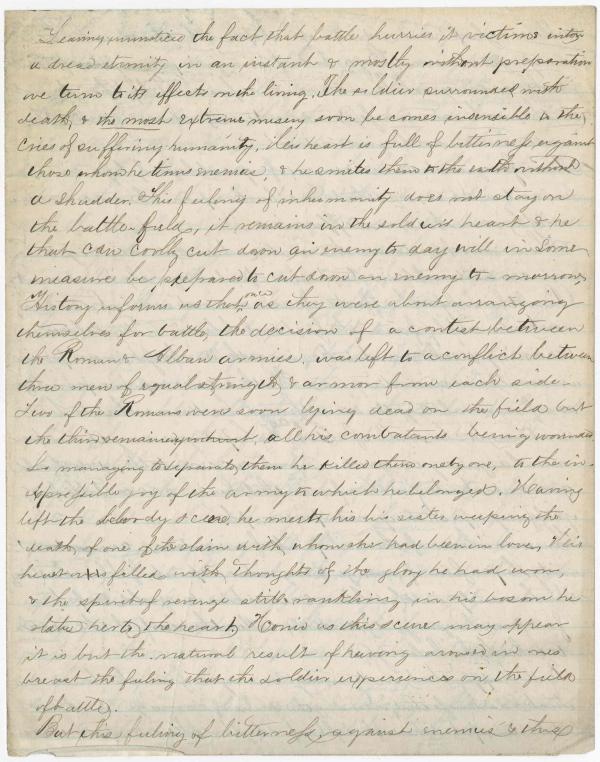 Leaving unnoticed the fact that battle hurries it victims into
a dread eternity in an instant & mostly without preparation
we turn to its effects on the living. The soldier surrounded with
death, & the most extreme misery soon be comes insensible to the
cries of suffering humanity. His heart is full of bitterness against
those whom he terms enemies, & he smites them to the earth without
a shudder. This feeling of inhumanity does not stay on
the battle-field, it remains in the soldier's heart & he
that can coolly cut down an enemy to day will in some
measure be prepared to cut down an enemy to-morrow.
History informs us that once as they were about arranging
themselves for battle, the decision of a contest between
the Roman & Alban armies, was left to a conflict between
three men of equal strength, & armor from each side.
Two of the Romans were soon lying dead on the field but
the third remained unhurt, all his combatants being wounded
So managing to separate them he killed them one by one, to the in-
expressible joy of the army to which he belonged. Having
left the bloody scene, he meets his his sister weeping the
death, of one of the slain with whom she had been in love, His
heart was filled with thoughts of the glory he had won,
& the spirit of revenge still rankling in his bosom he
stabs her to the heart. Horrid as this scene may appear
it is but the natural result of having aroused in ones
breast the feeling that the soldier experiences on the field
of battle.
But this feeling of bitterness, against enemies & thus